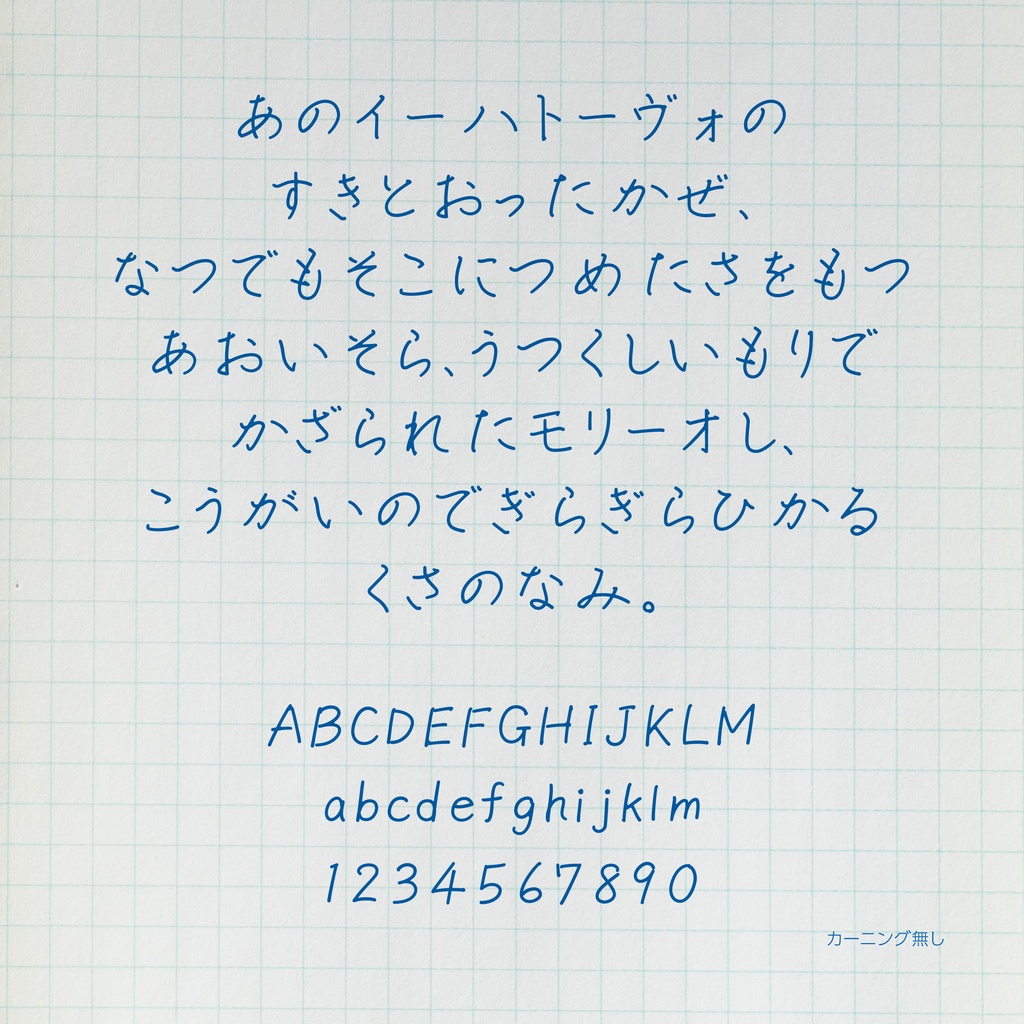 あのイーハトーヴォの
すきとおったかぜ、
なつでもそこにつめたさをもつ
あおいそら、うつくしいもりで
かざられたモリーオし、
こうがいのでぎらぎらひかる
くさのなみ。
ABCDEFGHIJKLM
abcdefghijklm
1234567890
カーニング無し